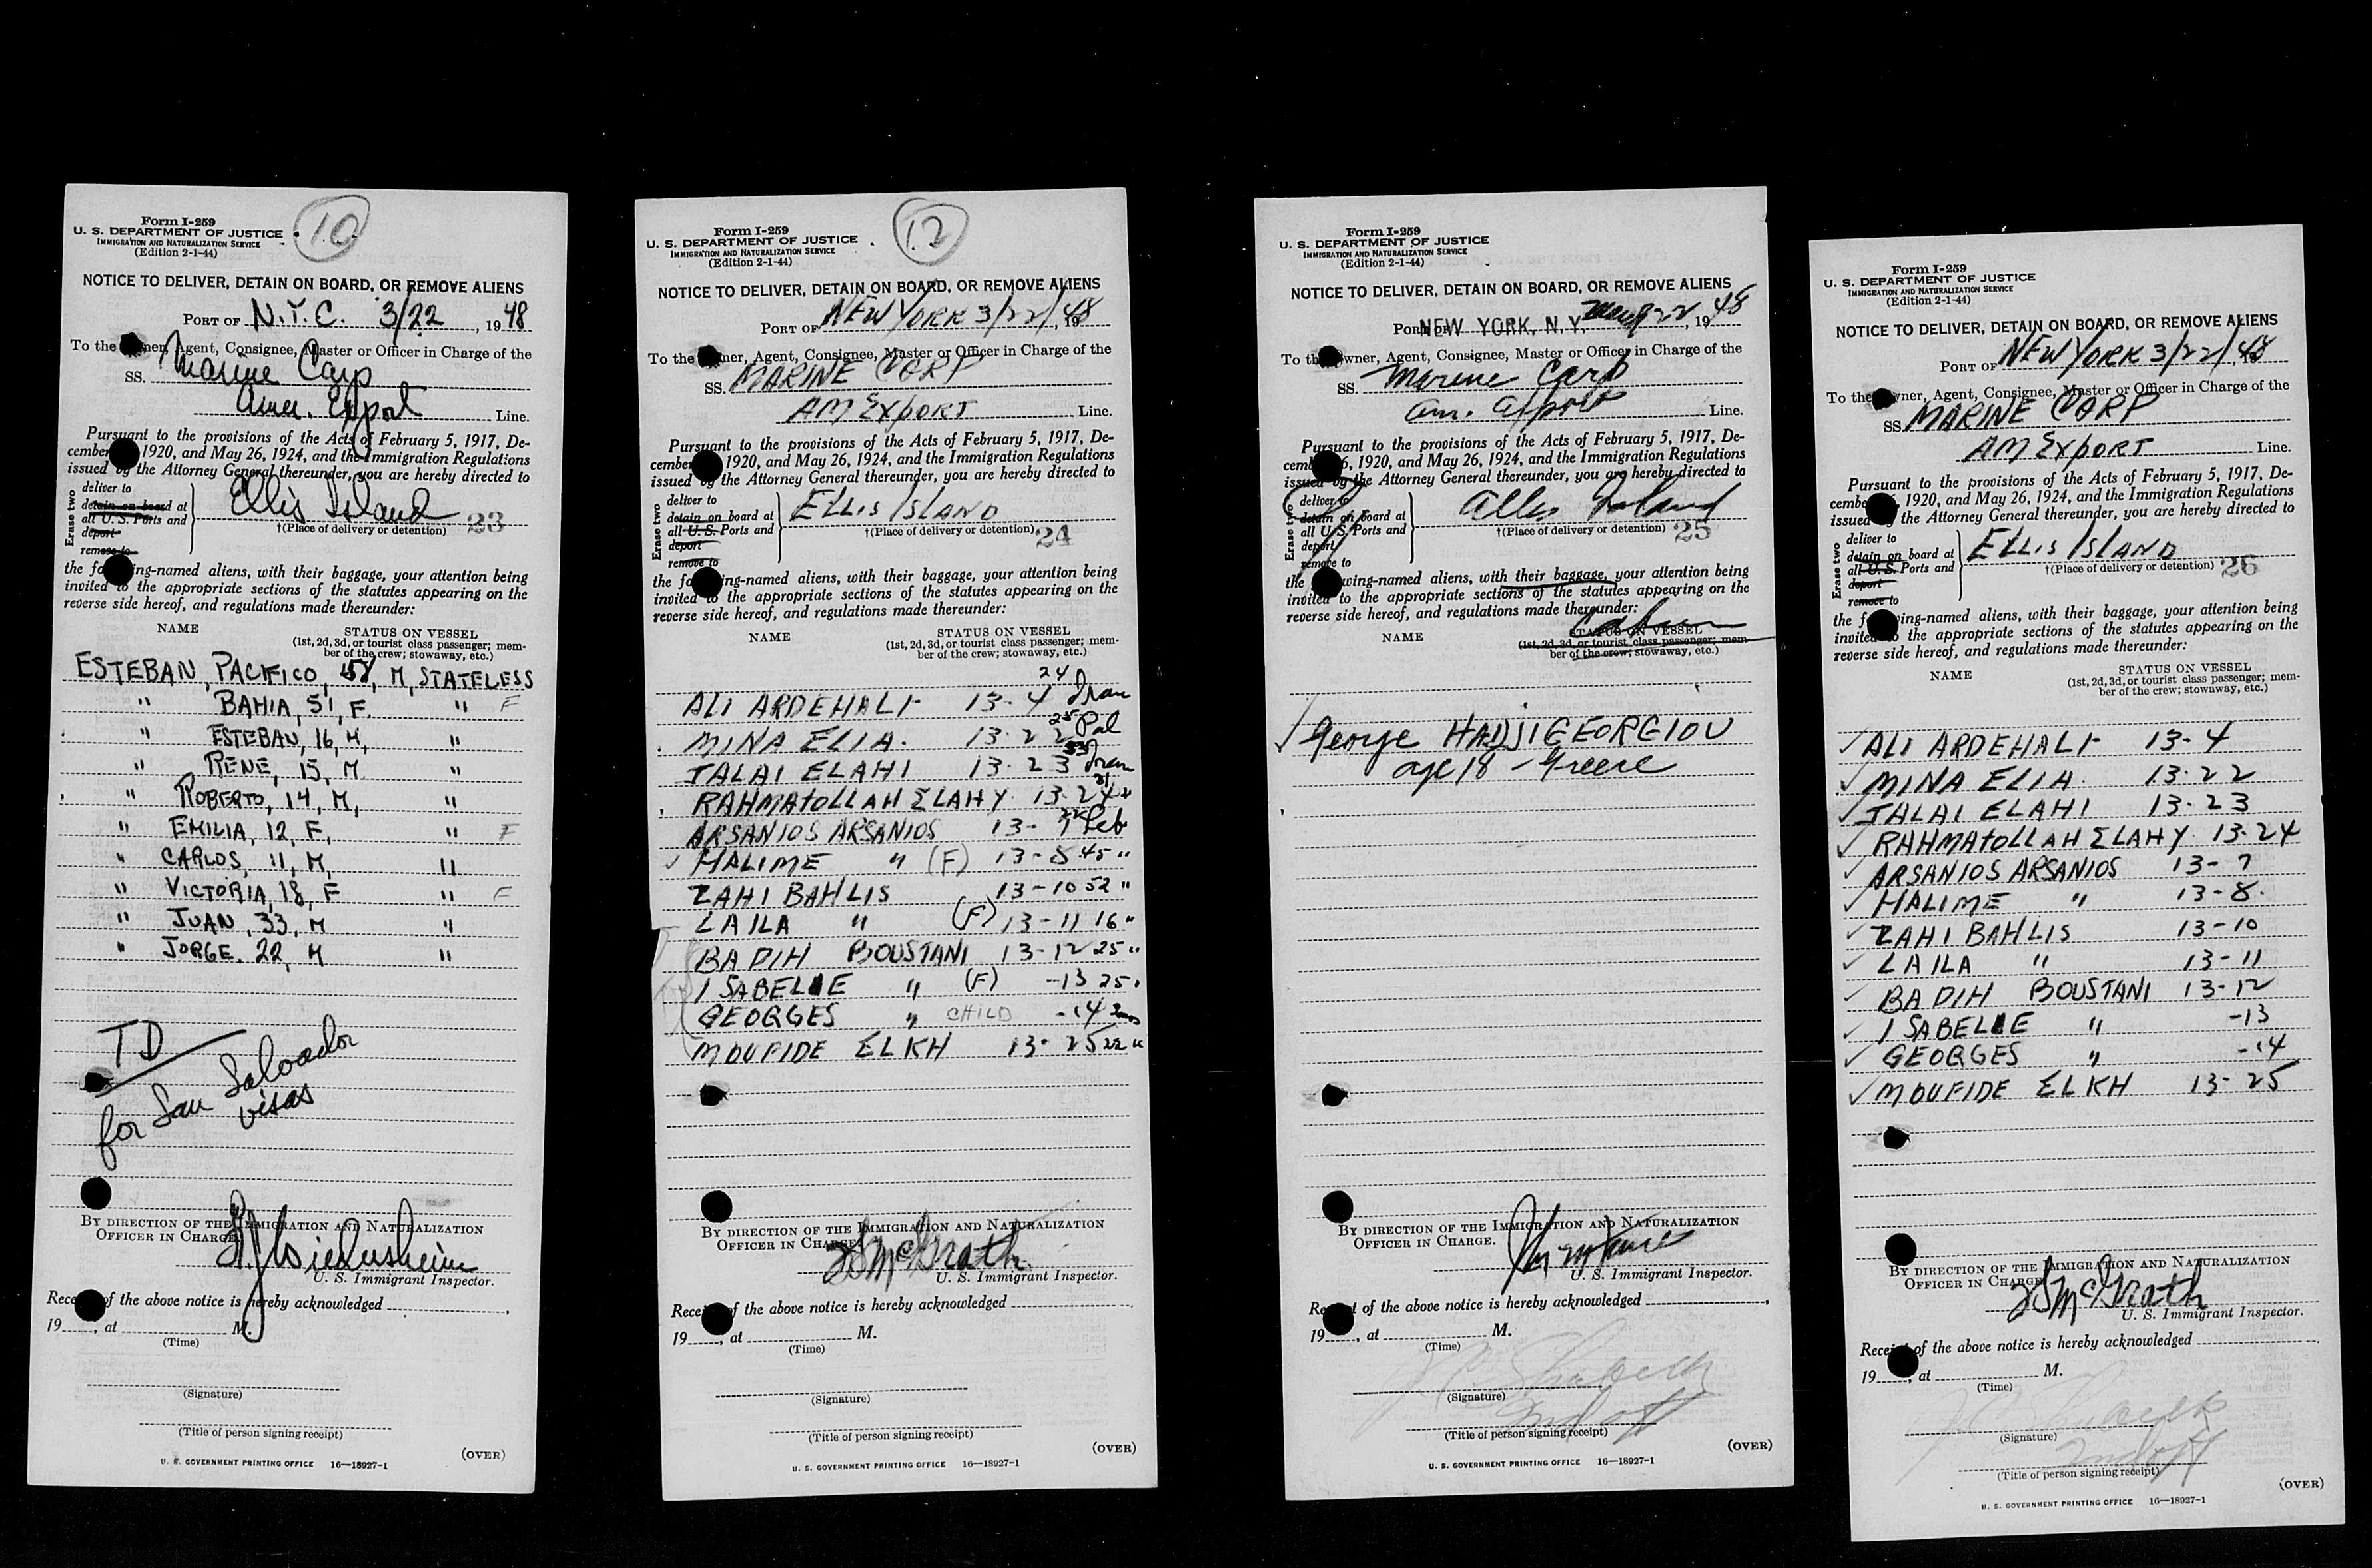 Form I-259
U. S. DEPARTMENT OF JUSTICE
IMMIGRATION AND NATURALIZATION SERVICE
(Edition 2-1-44)
10
NOTICE TO DELIVER, DETAIN ON BOARD, OR REMOVE ALIENS
PORT OF N.Y.C. 3/22, 1948
To the Owner, Agent, Consignee, Master or Officer in Charge of the
SS. Marine Carp
Amer. Export Line.
Pursuant to the provisions of the Acts of February 5, 1917, De-
cember 1920, and May 26, 1924, and the Immigration Regulations
issued by the Attorney General thereunder, you are hereby directed to
Erase two
deliver to
detain on board at
all U. S. Ports and
deport
remove to
Ellis Island
†(Place of delivery or detention) 23
the following-named aliens, with their baggage, your attention being
invited to the appropriate sections of the statutes appearing on the
reverse side hereof, and regulations made thereunder:
NAME STATUS ON VESSEL
(1st, 2d, 3d, or tourist class passenger; mem-
ber of the crew; stowaway, etc.)
ESTEBAN, PACIFICO, M, STATELESS
" BAHIA, 51, F. " F
" ESTEBAN, 16, M, "
" RENE, 15, M "
" ROBERTO, 14, M, "
" EMILIA, 12, F, " F
" CARLOS, 11, M, "
" VICTORIA, 18, F " F
" JUAN, 33, M "
" JORGE. 22, M "
TD
for San Salvador
visas
BY DIRECTION OF THE IMMIGRATION AND NATURALIZATION
OFFICER IN CHARGE.
U. S. Immigrant Inspector.
Receipt of the above notice is hereby acknowledged
19, at M.
(Time)
(Signature)
(Title of person signing receipt)
(OVER)
U. S. GOVERNMENT PRINTING OFFICE 16—18927-1
Form I-259
U. S. DEPARTMENT OF JUSTICE
IMMIGRATION AND NATURALIZATION SERVICE
(Edition 2-1-44)
12
NOTICE TO DELIVER, DETAIN ON BOARD, OR REMOVE ALIENS
PORT OF NEW YORK 3/22/, 1948
To the Owner, Agent, Consignee, Master or Officer in Charge of the
SS. MARINE CARP
AM EXPORT Line.
Pursuant to the provisions of the Acts of February 5, 1917, De-
cember 1920, and May 26, 1924, and the Immigration Regulations
issued by the Attorney General thereunder, you are hereby directed to
Erase two
deliver to
detain on board at
all U. S. Ports and
deport
remove to
ELLIS ISLAND
†(Place of delivery or detention) 24
the following-named aliens, with their baggage, your attention being
invited to the appropriate sections of the statutes appearing on the
reverse side hereof, and regulations made thereunder:
NAME STATUS ON VESSEL
(1st, 2d, 3d, or tourist class passenger; mem-
ber of the crew; stowaway, etc.)
ALI ARDEHALI 13-4 24 Iran
MINA ELIA. 13-22 25 Pal
JALAI ELAHI 13-23 53 Iran
RAHMATOLLAH ELAHY 13-24 21 "
ARSANIOS ARSANIOS 13-7 Leb
HALIME " (F) 13-8 45 "
ZAHI BAHLIS 13-10 52 "
LAILA " (F) 13-11 16 "
BADIH BOUSTANI 13-12 25 "
ISABELLE " (F) -13 25 "
GEORGES " CHILD -14 3 mos
MOUFIDE EL KH 13-25 22 "
BY DIRECTION OF THE IMMIGRATION AND NATURALIZATION
OFFICER IN CHARGE.
McGrath
U. S. Immigrant Inspector.
Receipt of the above notice is hereby acknowledged
19, at M.
(Time)
(Signature)
(Title of person signing receipt)
(OVER)
U. S. GOVERNMENT PRINTING OFFICE 16—18927-1
Form I-259
U. S. DEPARTMENT OF JUSTICE
IMMIGRATION AND NATURALIZATION SERVICE
(Edition 2-1-44)
NOTICE TO DELIVER, DETAIN ON BOARD, OR REMOVE ALIENS
PORT OF NEW YORK, N.Y. 22, 1948
To the Owner, Agent, Consignee, Master or Officer in Charge of the
SS. Marine Carp
Am. Export Line.
Pursuant to the provisions of the Acts of February 5, 1917, De-
cember 5, 1920, and May 26, 1924, and the Immigration Regulations
issued by the Attorney General thereunder, you are hereby directed to
Erase two
deliver to
detain on board at
all U. S. Ports and
deport
remove to
Ellis Island
†(Place of delivery or detention) 25
the following-named aliens, with their baggage, your attention being
invited to the appropriate sections of the statutes appearing on the
reverse side hereof, and regulations made thereunder:
Cabin
NAME STATUS ON VESSEL
(1st, 2d, 3d, or tourist class passenger; mem-
ber of the crew; stowaway, etc.)
✓ George HADJIGEORGIOU
age 18 - Greece
BY DIRECTION OF THE IMMIGRATION AND NATURALIZATION
OFFICER IN CHARGE.
U. S. Immigrant Inspector.
Receipt of the above notice is hereby acknowledged
19, at M.
(Time)
(Signature)
(Title of person signing receipt)
(OVER)
U. S. GOVERNMENT PRINTING OFFICE 16—18927-1
Form I-259
U. S. DEPARTMENT OF JUSTICE
IMMIGRATION AND NATURALIZATION SERVICE
(Edition 2-1-44)
NOTICE TO DELIVER, DETAIN ON BOARD, OR REMOVE ALIENS
PORT OF NEW YORK 3/22/, 1948
To the Owner, Agent, Consignee, Master or Officer in Charge of the
SS. MARINE CARP
AM EXPORT Line.
Pursuant to the provisions of the Acts of February 5, 1917, De-
cember 1920, and May 26, 1924, and the Immigration Regulations
issued by the Attorney General thereunder, you are hereby directed to
Erase two
deliver to
detain on board at
all U. S. Ports and
deport
remove to
ELLIS ISLAND
†(Place of delivery or detention) 26
the following-named aliens, with their baggage, your attention being
invited to the appropriate sections of the statutes appearing on the
reverse side hereof, and regulations made thereunder:
NAME STATUS ON VESSEL
(1st, 2d, 3d, or tourist class passenger; mem-
ber of the crew; stowaway, etc.)
✓ ALI ARDEHALI 13-4
✓ MINA ELIA. 13-22
✓ JALAI ELAHI 13-23
✓ RAHMATOLLAH ELAHY 13-24
✓ ARSANIOS ARSANIOS 13-7
✓ HALIME " 13-8.
✓ ZAHI BAHLIS 13-10
✓ LAILA " 13-11
✓ BADIH BOUSTANI 13-12
✓ ISABELLE " -13
✓ GEORGES " -14
✓ MOUFIDE EL KH 13-25
BY DIRECTION OF THE IMMIGRATION AND NATURALIZATION
OFFICER IN CHARGE.
McGrath
U. S. Immigrant Inspector.
Receipt of the above notice is hereby acknowledged
19, at M.
(Time)
(Signature)
(Title of person signing receipt)
(OVER)
U. S. GOVERNMENT PRINTING OFFICE 16—18927-1